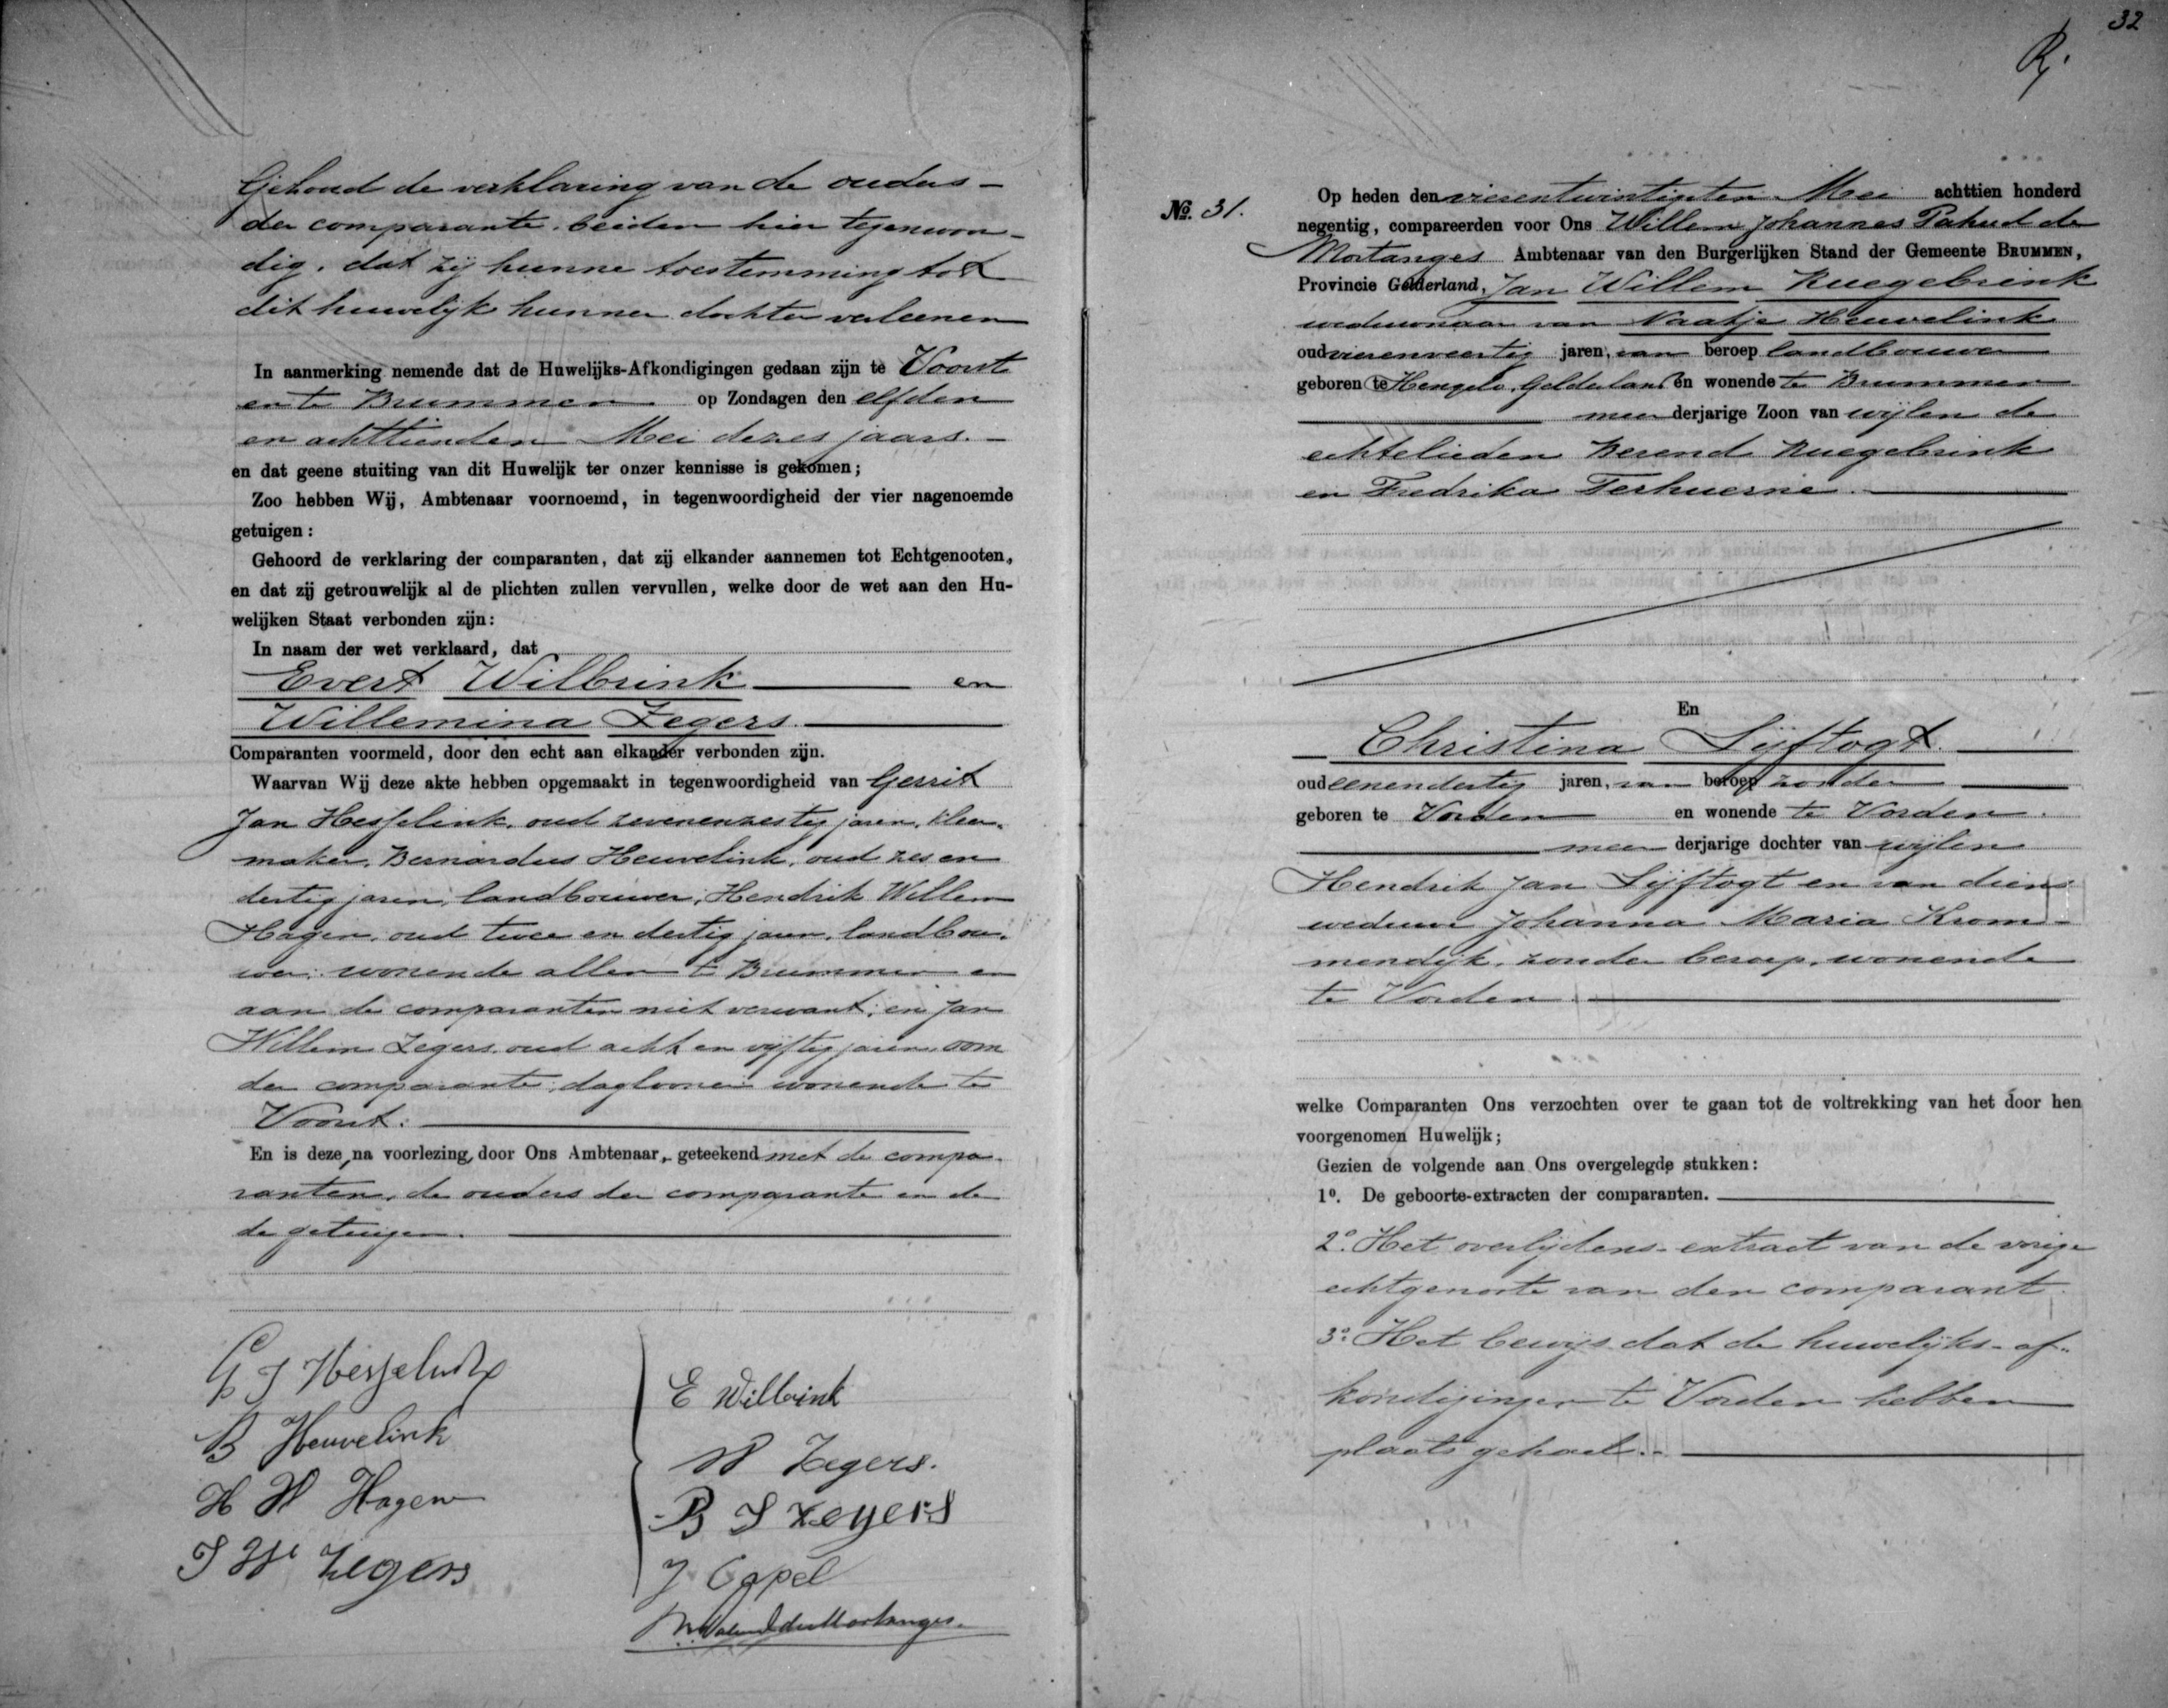 Gehoord de verklaring van de ouders -
der comparante, beiden hier tegenwoor-
dig, dat zij hunne toestemming tot
dit huwelijk hunner dochter verleenen
In aanmerking nemende dat de Huwelijks-Afkondigingen gedaan zijn te Voorst
en te Brummen op Zondagen den elfden
en achttienden Mei dezes jaars. -
en dat geene stuiting van dit Huwelijk ter onzer kennisse is gekomen;
Zoo hebben Wij, Ambtenaar voornoemd, in tegenwoordigheid der vier nagenoemde
getuigen:
Gehoord de verklaring der comparanten, dat zij elkander aannemen tot Echtgenooten,
en dat zij getrouwelijk al de plichten zullen vervullen, welke door de wet aan den Hu-
welijken Staat verbonden zijn:
In naam der wet verklaard, dat
Evert Wilbrink en
Willemina Zegers.
Comparanten voormeld, door den echt aan elkander verbonden zijn.
Waarvan Wij deze akte hebben opgemaakt in tegenwoordigheid van Gerrit
Jan Hesselink, oud zevenenzestig jaren, kleer-
maker, Bernardus Heuvelink, oud zes en
dertig jaren, landbouwer, Hendrik Willem
Hagen, oud twee en dertig jaren, landbou-
wer, wonende allen te Brummen en
aan de comparanten niet verwant; en Jan
Willem Zegers, oud acht en vijftig jaren, oom
der comparante, daglooner wonende te
Voorst.
En is deze, na voorlezing, door Ons Ambtenaar, geteekend met de compa-
ranten, de ouders der comparante en de
de getuigen.
G J Hesselink
B Heuvelink
H W Hagen
J W Zegers
E Wilbrink
W Zegers.
B J Zegers
J Cappel
32
No. 31.
Op heden den vierentwintigsten Mei achttien honderd
negentig, compareerden voor Ons Willem Johannes Pahud de
Mortanges Ambtenaar van den Burgerlijken Stand der Gemeente BRUMMEN,
Provincie Gelderland, Jan Willem Ruegebrink
weduwnaar van Naatje Heuvelink
oud vierenveertig jaren, van beroep landbouwer
geboren te Hengelo, Gelderland en wonende te Brummen
meerderjarige Zoon van wijlen de
echtelieden Berend Ruegebrink
en Fredrika Terhuerne.
En
Christina Lijftogt.
oud eenendertig jaren, van beroep zonder
geboren te Vorden en wonende te Vorden.
meerderjarige dochter van wijlen
Hendrik Jan Lijftogt en van diens
weduwe Johanna Maria Krom-
mendijk, zonder beroep, wonende
te Vorden.
welke Comparanten Ons verzochten over te gaan tot de voltrekking van het door hen
voorgenomen Huwelijk;
Gezien de volgende aan Ons overgelegde stukken:
1o. De geboorte-extracten der comparanten.
2o. Het overlijdens-extract van de vorige
echtgenoote van den comparant.
3o. Het bewijs dat de huwelijks-af-
kondigingen te Vorden hebben
plaats gehad.